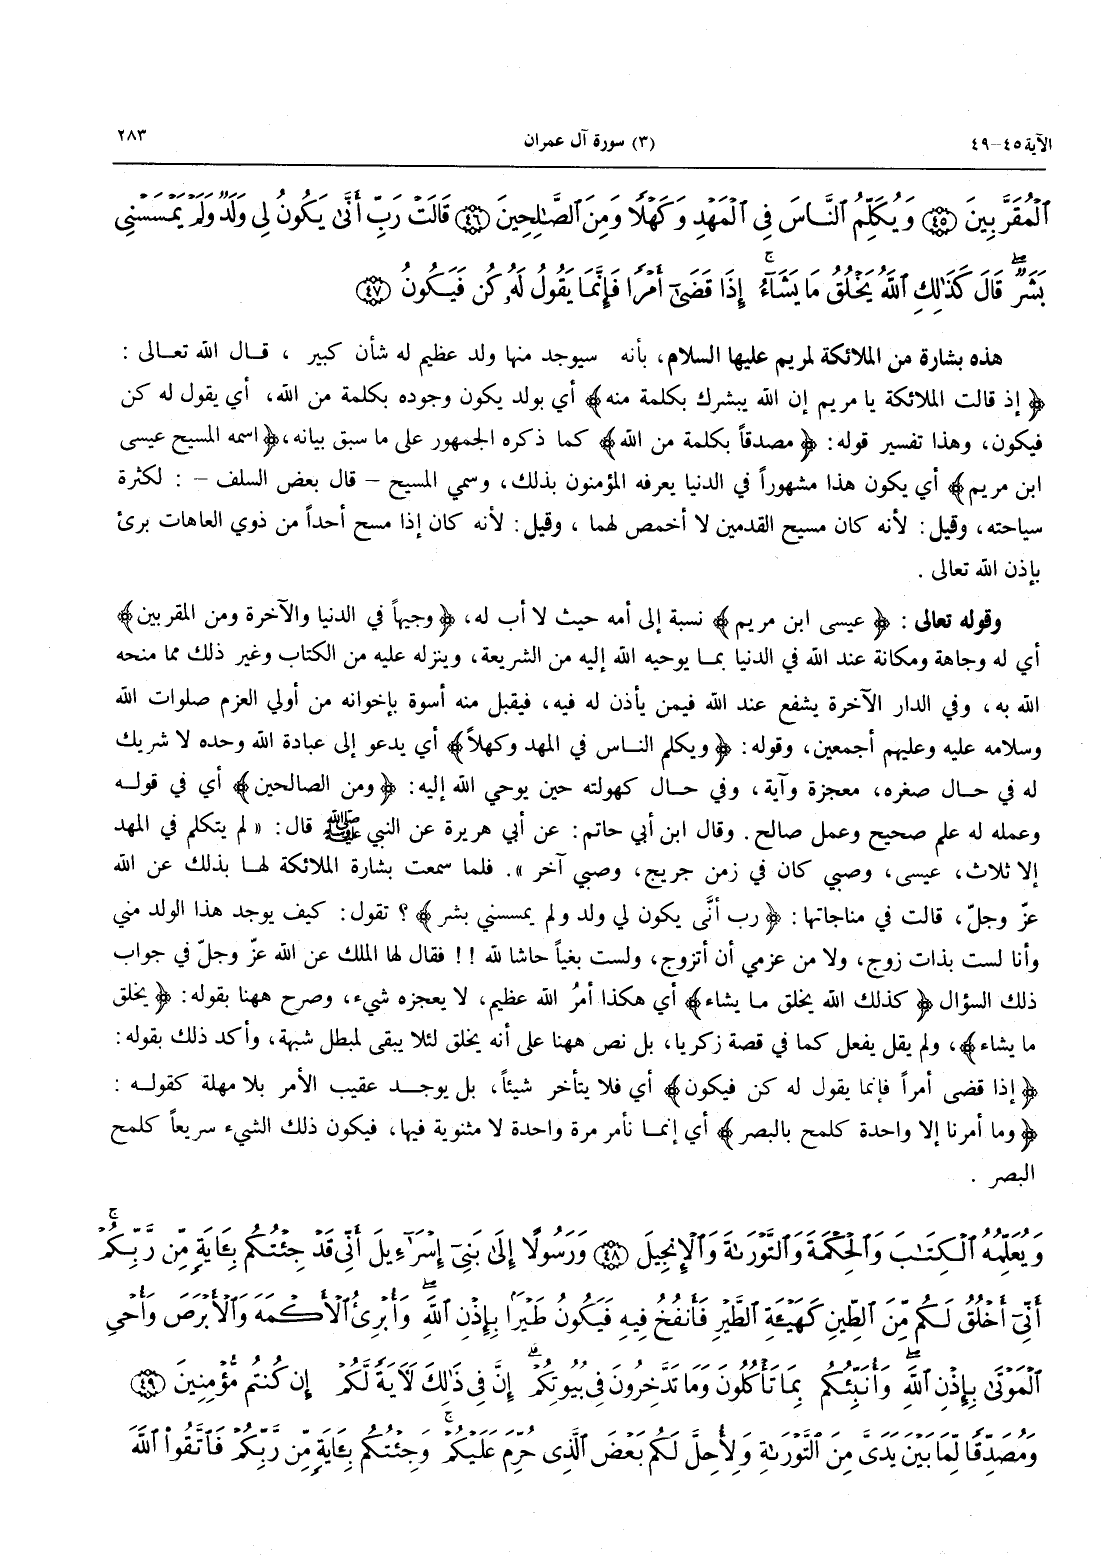 الآية ٤٥-٤٩ (٣) سورة آل عمران ٢٨٣
ٱلْمُقَرَّبِينَ ﴿٤٥﴾ وَيُكَلِّمُ ٱلنَّاسَ فِى ٱلْمَهْدِ وَكَهْلًا وَمِنَ ٱلصَّٰلِحِينَ ﴿٤٦﴾ قَالَتْ رَبِّ أَنَّىٰ يَكُونُ لِى وَلَدٌ وَلَمْ يَمْسَسْنِى
بَشَرٌ ۖ قَالَ كَذَٰلِكِ ٱللَّهُ يَخْلُقُ مَا يَشَآءُ ۚ إِذَا قَضَىٰٓ أَمْرًا فَإِنَّمَا يَقُولُ لَهُۥ كُن فَيَكُونُ ﴿٤٧﴾
هذه بشارة من الملائكة لمريم عليها السلام، بأنه سيوجد منها ولد عظيم له شأن كبير ، قال الله تعالى :
﴿إذ قالت الملائكة يا مريم إن الله يبشرك بكلمة منه﴾ أي بولد يكون وجوده بكلمة من الله، أي يقول له كن
فيكون، وهذا تفسير قوله: ﴿مصدقاً بكلمة من الله﴾ كما ذكره الجمهور على ما سبق بيانه، ﴿اسمه المسيح عيسى
ابن مريم﴾ أي يكون هذا مشهوراً في الدنيا يعرفه المؤمنون بذلك، وسمي المسيح – قال بعض السلف – : لكثرة
سياحته، وقيل: لأنه كان مسيح القدمين لا أخمص لهما ، وقيل: لأنه كان إذا مسح أحداً من ذوي العاهات برئ
بإذن الله تعالى .
وقوله تعالى : ﴿عيسى ابن مريم﴾ نسبة إلى أمه حيث لا أب له، ﴿وجيهاً في الدنيا والآخرة ومن المقربين﴾
أي له وجاهة ومكانة عند الله في الدنيا بما يوحيه الله إليه من الشريعة، وينزله عليه من الكتاب وغير ذلك مما منحه
الله به، وفي الدار الآخرة يشفع عند الله فيمن يأذن له فيه، فيقبل منه أسوة بإخوانه من أولي العزم صلوات الله
وسلامه عليه وعليهم أجمعين، وقوله: ﴿ويكلم الناس في المهد وكهلاً﴾ أي يدعو إلى عبادة الله وحده لا شريك
له في حال صغره، معجزة وآية، وفي حال كهولته حين يوحي الله إليه: ﴿ومن الصالحين﴾ أي في قوله
وعمله له علم صحيح وعمل صالح. وقال ابن أبي حاتم: عن أبي هريرة عن النبي ﷺ قال: « لم يتكلم في المهد
إلا ثلاث، عيسى، وصبي كان في زمن جريج، وصبي آخر ». فلما سمعت بشارة الملائكة لها بذلك عن الله
عزّ وجلّ، قالت في مناجاتها: ﴿رب أنَّى يكون لي ولد ولم يمسسني بشر﴾ ؟ تقول: كيف يوجد هذا الولد مني
وأنا لست بذات زوج، ولا من عزمي أن أتزوج، ولست بغياً حاشا لله !! فقال لها الملك عن الله عزّ وجلّ في جواب
ذلك السؤال ﴿كذلك الله يخلق ما يشاء﴾ أي هكذا أمرُ الله عظيم، لا يعجزه شيء، وصرح ههنا بقوله: ﴿يخلق
ما يشاء﴾، ولم يقل يفعل كما في قصة زكريا، بل نص ههنا على أنه يخلق لئلا يبقى لمبطل شبهة، وأكد ذلك بقوله:
﴿إذا قضى أمراً فإنما يقول له كن فيكون﴾ أي فلا يتأخر شيئاً، بل يوجد عقيب الأمر بلا مهلة كقوله :
﴿وما أمرنا إلا واحدة كلمح بالبصر﴾ أي إنما نأمر مرة واحدة لا مثنوية فيها، فيكون ذلك الشيء سريعاً كلمح
البصر .
وَيُعَلِّمُهُ ٱلْكِتَٰبَ وَٱلْحِكْمَةَ وَٱلتَّوْرَىٰةَ وَٱلْإِنجِيلَ ﴿٤٨﴾ وَرَسُولًا إِلَىٰ بَنِىٓ إِسْرَٰٓءِيلَ أَنِّى قَدْ جِئْتُكُم بِـَٔايَةٍ مِّن رَّبِّكُمْ ۚ
أَنِّىٓ أَخْلُقُ لَكُم مِّنَ ٱلطِّينِ كَهَيْـَٔةِ ٱلطَّيْرِ فَأَنفُخُ فِيهِ فَيَكُونُ طَيْرًۢا بِإِذْنِ ٱللَّهِ ۖ وَأُبْرِئُ ٱلْأَكْمَهَ وَٱلْأَبْرَصَ وَأُحْىِ
ٱلْمَوْتَىٰ بِإِذْنِ ٱللَّهِ ۖ وَأُنَبِّئُكُم بِمَا تَأْكُلُونَ وَمَا تَدَّخِرُونَ فِى بُيُوتِكُمْ ۚ إِنَّ فِى ذَٰلِكَ لَـَٔايَةً لَّكُمْ إِن كُنتُم مُّؤْمِنِينَ ﴿٤٩﴾
وَمُصَدِّقًا لِّمَا بَيْنَ يَدَىَّ مِنَ ٱلتَّوْرَىٰةِ وَلِأُحِلَّ لَكُم بَعْضَ ٱلَّذِى حُرِّمَ عَلَيْكُمْ ۚ وَجِئْتُكُم بِـَٔايَةٍ مِّن رَّبِّكُمْ فَٱتَّقُوا۟ ٱللَّهَ